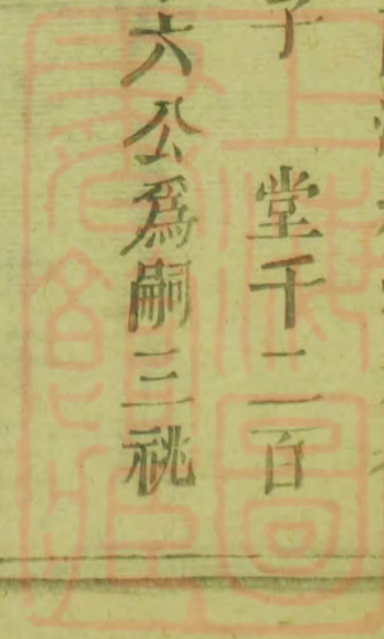 子 堂千二百
六公爲嗣三祧